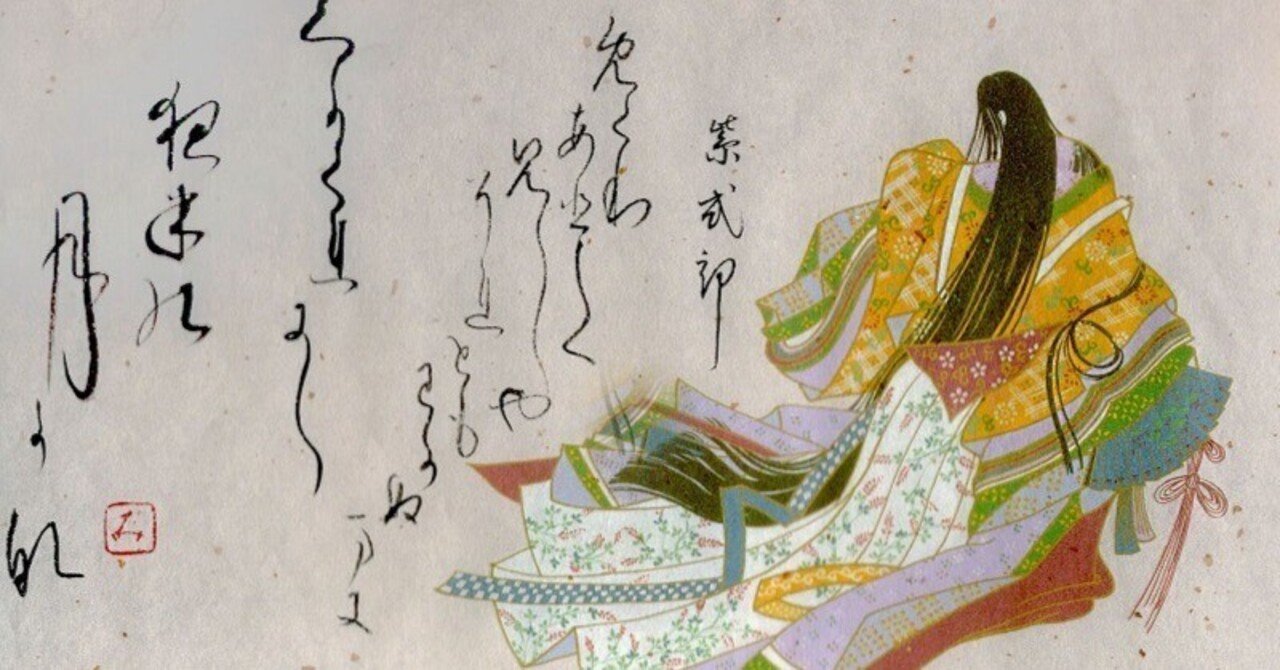 紫式部
めくり
あひて
見しや
それとも
わかぬ
まに
くもかくれにし
夜半の
月かな